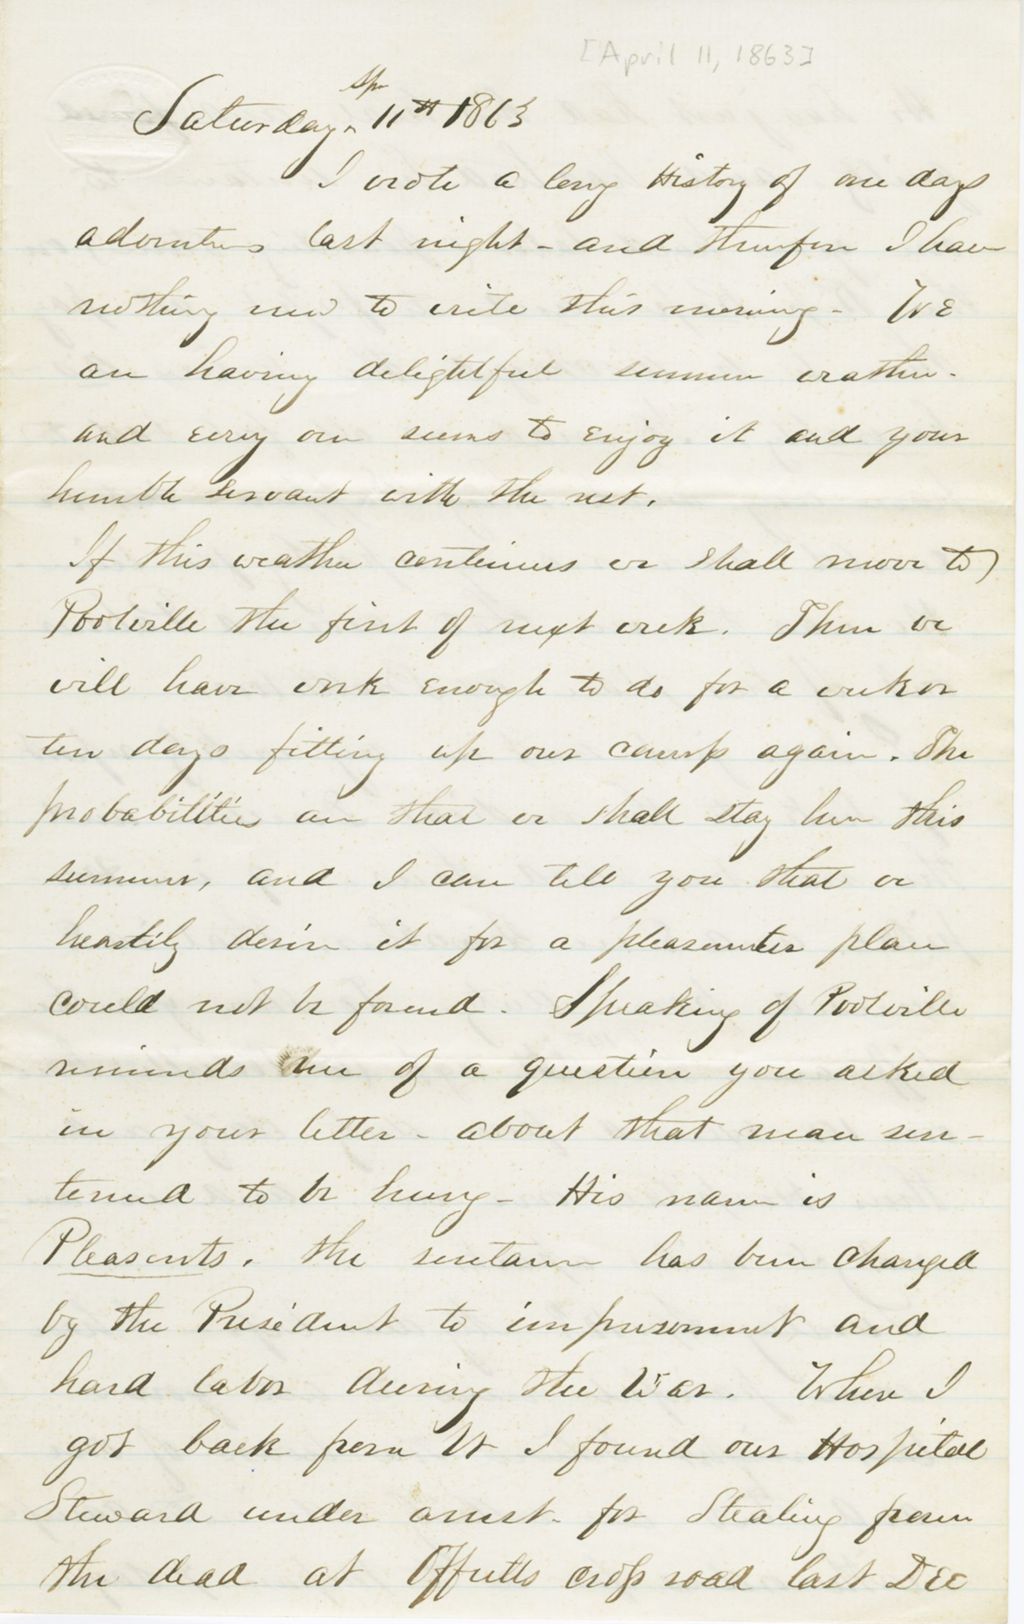 [April 11, 1863]
Saturday Ap 11th 1863
I wrote a long History of one days
adventures last night - and therefore I have
nothing new to write this morning - We
are having delightful summer weather -
and every one seems to enjoy it and your
humble servant with the rest.
If this weather continues we shall move to
Poolville the first of next week. Then we
will have work enough to do for a week or
ten days fitting up our camp again. The
probabilities are that we shall stay here this
summer, and I can tell you that we
heartily desire it for a pleasanter place
could not be found. Speaking of Poolville
reminds me of a question you asked
in your letter - about that man sen-
tenced to be hung - His name is
Pleasents. The sentance has been changed
by the President to imprisonment and
hard labor during the War. When I
got back from Vt I found our Hospital
Steward under arrest - for Stealing from
the dead at Offutts cross road last Dec